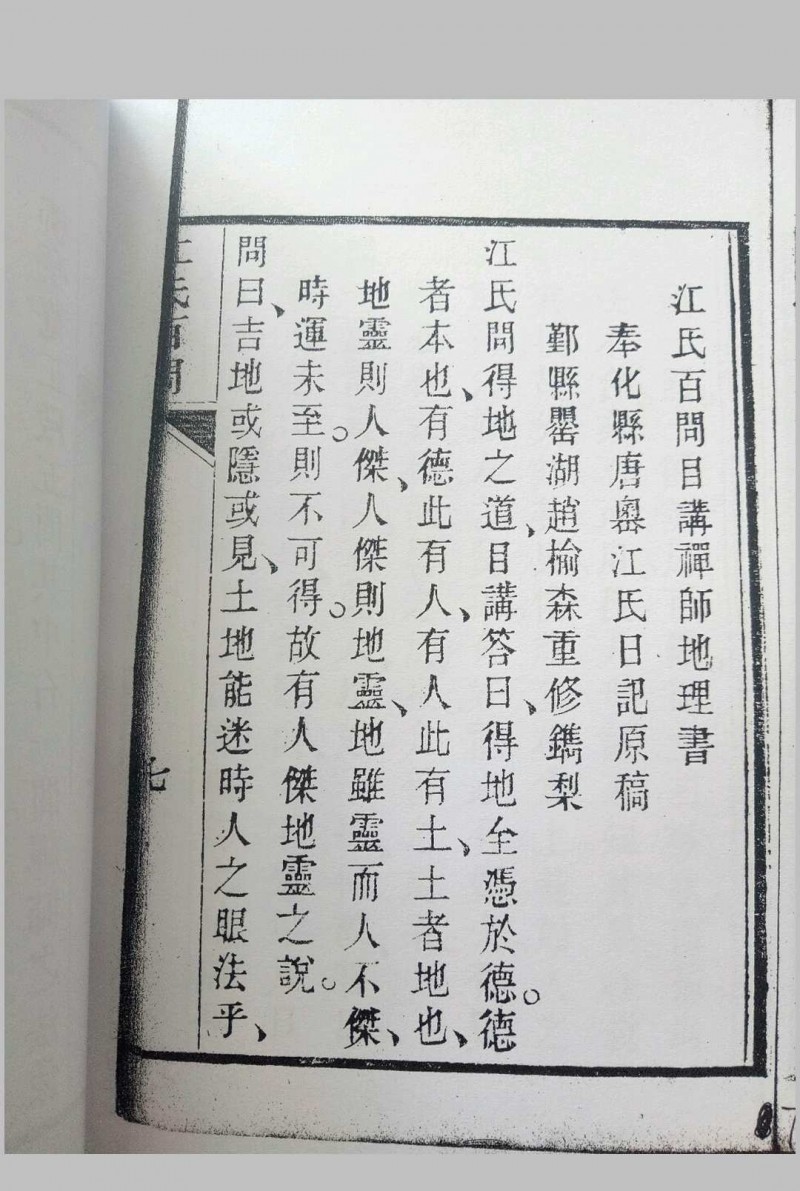 江氏百問目講禪師地理書
奉化縣唐嶴江氏日記原稿
鄞縣罌湖趙榆森重修鐫梨
江氏問得地之道、目講答曰、得地全憑於德。德
者本也、有德此有人、有人此有土、土者地也、
地靈則人傑、人傑則地靈、地雖靈而人不傑、
時運未至。則不可得。故有人傑地靈之說。
問曰、吉地或隱或見、土地能迷時人之眼法乎、
江氏百問
七